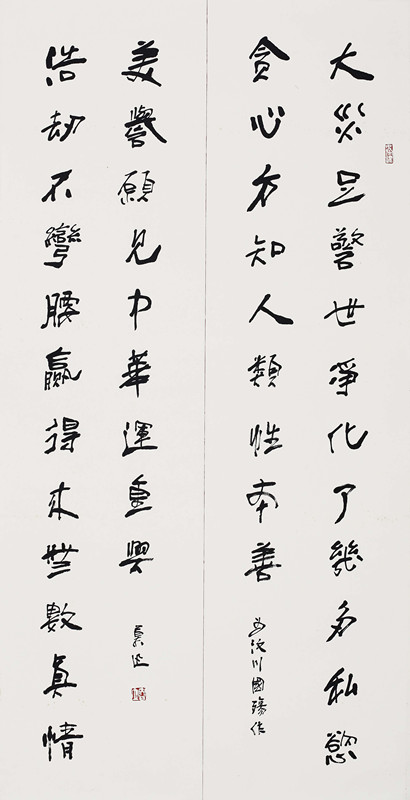 大災足警世淨化了幾多私慾
貪心方知人類性本善
为汶川國殤作
浩劫不彎腰贏得來無數真情
美譽願見中華運重興